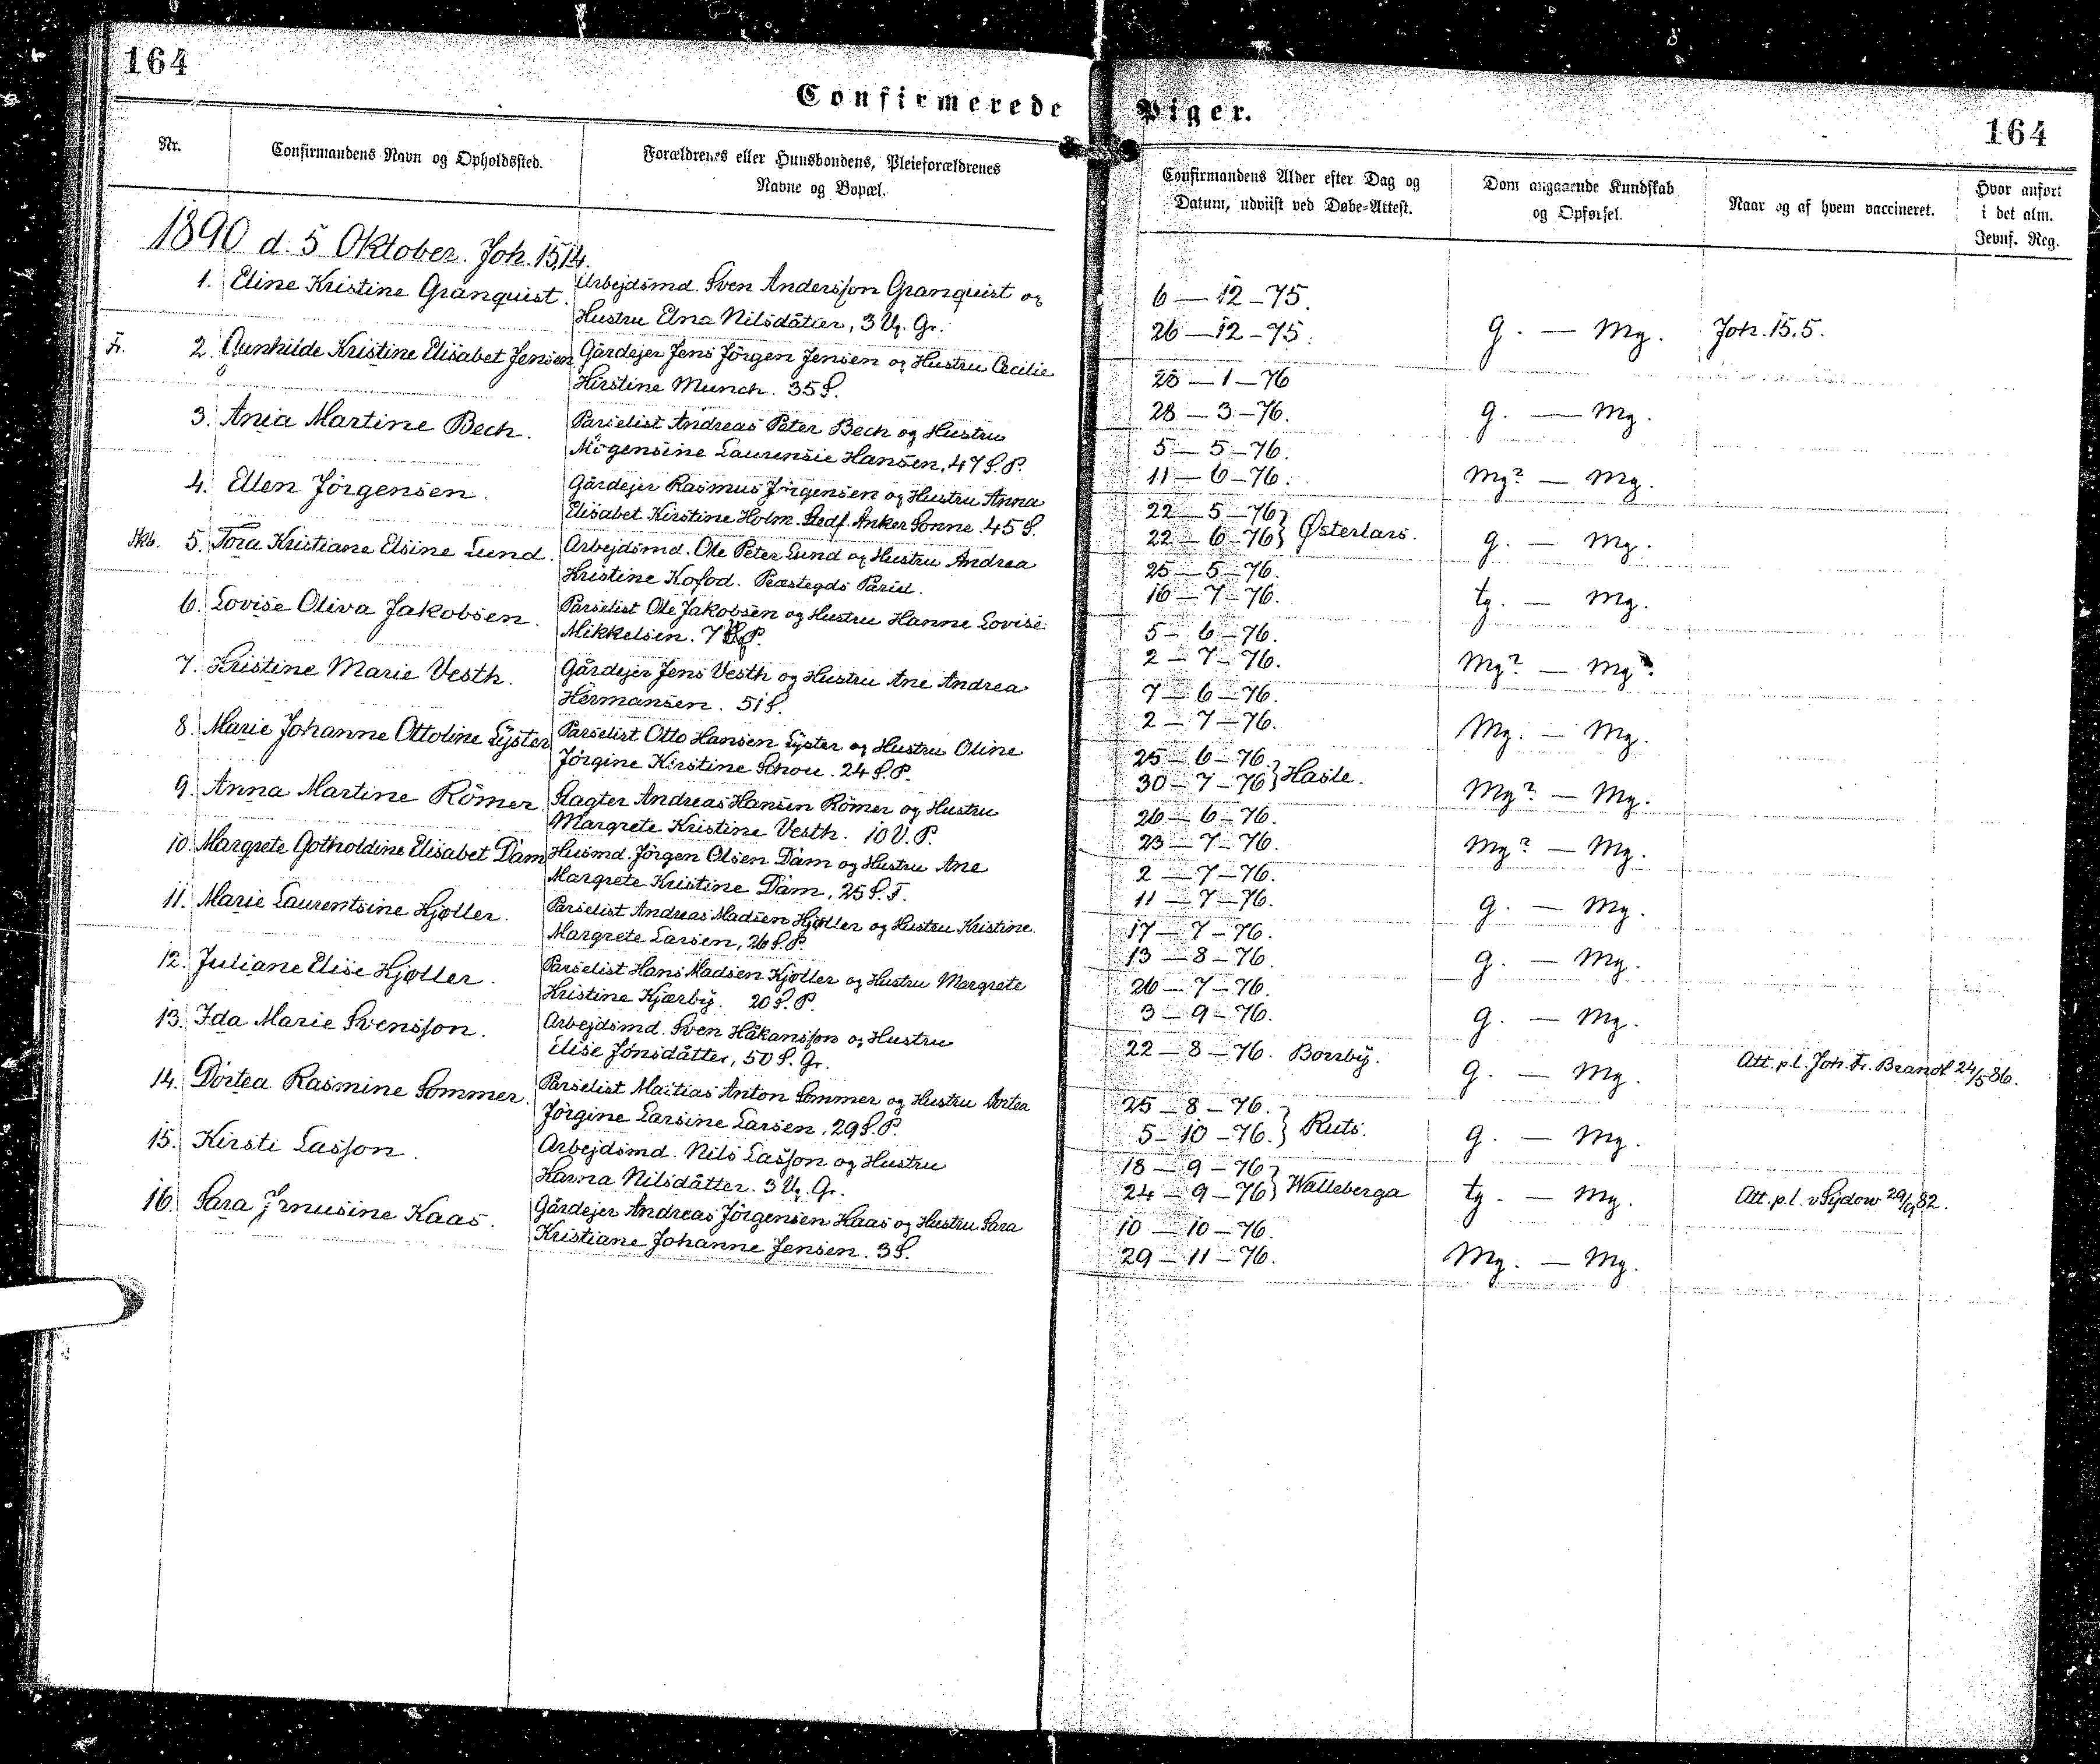 164
Confirmerede
Nr.
Confirmandens Navn og Opholdssted.
Forældrenes eller Huusbondens, Pleieforældrenes
Navne og Bopæl.
1890 d. 5 Oktober. Joh. 15,14.
1. Eline Kristine Granquist.
Arbejdsmd. Sven Andersson Granquist og
Hustru Elna Nilsdåtter, 3 Vg. Gr.
Fr. 2. Gunhilde Kristine Elisabet Jensen
Gårdejer Jens Jörgen Jensen og Hustru Cecilie
Kirstine Munch. 35 S.
3. Ania Martine Bech.
Parselist Andreas Peter Bech og Hustru
Mogensine Laurensie Hansen, 47 S. P.
4. Ellen Jörgensen.
Gårdejer Rasmus Jörgensen og Hustru Anna
Elisabet Kirstine Holm. Stedf. Anker Sonne. 45 S.
Skb. 5. Tora Kristiane Elsine Lund.
Arbejdsmd. Ole Peter Lund og Hustru Andrea
Kristine Kofod. Præstegds Parsel.
6. Lovise Oliva Jakobsen.
Parselist Ole Jakobsen og Hustru Hanne Lovise
Mikkelsen. 7 P.
7. Kristine Marie Vesth.
Gårdejer Jens Vesth og Hustru Ane Andrea
Hermansen. 51 S.
8. Marie Johanne Ottoline Lyster
Parselist Otto Hansen Lyster og Hustru Oline
Jörgine Kirstine Schou. 24 S. P.
9. Anna Martine Römer.
Slagter Andreas Hansen Römer og Hustru
Margrete Kristine Vesth. 10 V. P.
10. Margrete Gotholdine Elisabet Dam
Husmd. Jörgen Olsen Dam og Hustru Ane
Margrete Kristine Dam, 25 S. T.
11. Marie Laurentsine Kjøller.
Parselist Andreas Madsen Kjøller og Hustru Kristine
Margrete Larsen, 26 S. P.
12. Juliane Elise Kjøller.
Parselist Hans Madsen Kjøller og Hustru Margrete
Kristine Kjærby. 20 S. P.
13. Ida Marie Svensson.
Arbejdsmd. Sven Håkansson og Hustru
Elise Jönsdåtter, 50 S. Gr.
14. Dortea Rasmine Sommer.
Parselist Mattias Anton Sommer og Hustru Dortea
Jörgine Larsine Larsen. 29 S. P.
15. Kirsti Lasson.
Arbejdsmd. Nils Lasson og Hustru
Karna Nilsdåtter. 3 Vg. Gr.
16. Sara Jrnusine Kaas.
Gårdejer Andreas Jörgensen Kaas og Hustru Sara
Kristiane Johanne Jensen. 3 S.
Piger.
164
Confirmandens Alder efter Dag og
Datum, udviist ved Døbe-Attest.
Dom angaaende Kundskab
og Opførsel.
Naar og af hvem vaccineret.
Hvor anført
i det alm.
Jevnf. Reg.
6 — 12 – 75.
26 — 12 – 75. g. — Mg. Joh. 15.5.
28 — 1 – 76
28 — 3 – 76. g. — Mg.
5 — 5 – 76.
11 — 6 – 76. Mg? — Mg.
22 — 5 – 76
22 — 6 – 76 } Østerlars. g. — Mg.
25 — 5 – 76.
16 — 7 – 76. tg. — Mg.
5 – 6 – 76.
2 — 7 – 76. Mg? — Mg?
7 — 6 – 76.
2 — 7 – 76. Mg. — Mg.
25 — 6 – 76.
30 – 7 – 76 } Hasle. Mg? — Mg.
26 — 6 – 76.
23 — 7 – 76. Mg? — Mg.
2 — 7 – 76.
11 — 7 – 76. g. — Mg.
17 — 7 – 76.
13 — 8 – 76. g. — Mg.
26 — 7 – 76.
3 — 9 – 76. g. — Mg.
22 — 8 – 76. Borrby. g. — Mg. Att. p.l. Joh. Fr. Brandt 24/5 86.
25 — 8 – 76.
5 – 10 – 76. } Ruts. g. — Mg.
18 — 9 – 76
24 — 9 – 76 } Walleberga tg. — Mg. Att. p.l. v Sydow 29/9 82.
10 — 10 – 76.
29 — 11 – 76. Mg. — Mg.